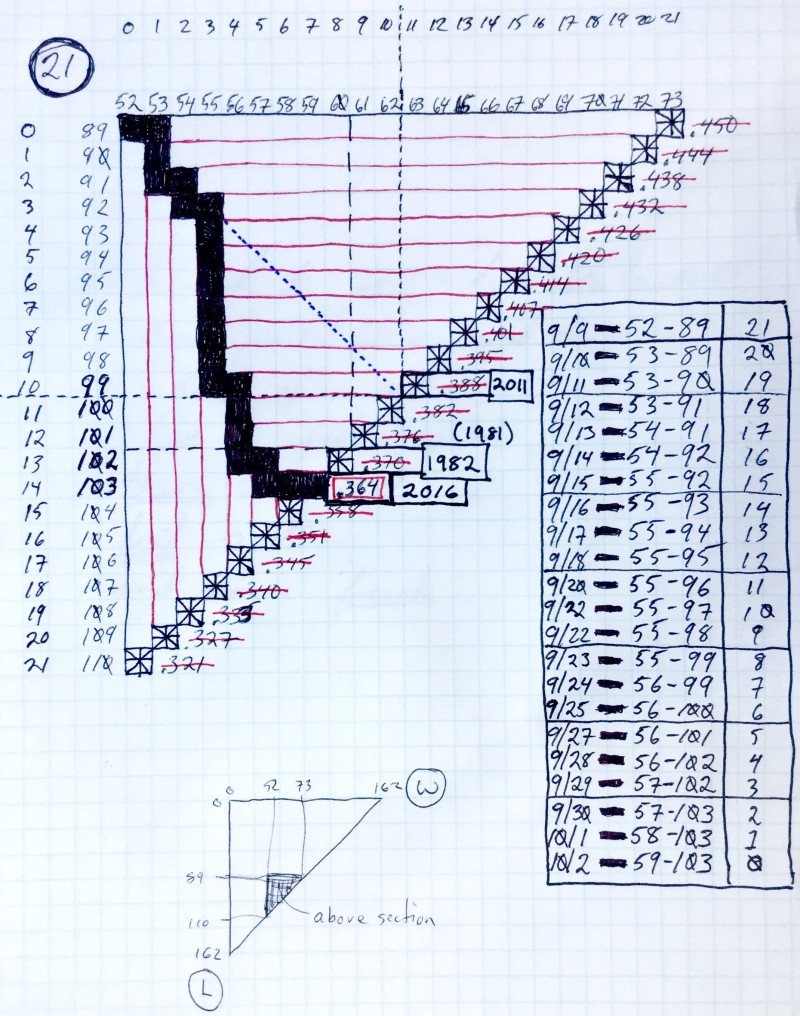 0 1 2 3 4 5 6 7 8 9 10 11 12 13 14 15 16 17 18 19 20 21
21
52 53 54 55 56 57 58 59 60 61 62 63 64 65 66 67 68 69 70 71 72 73
0 89 .450
1 90 .444
2 91 .438
3 92 .432
4 93 .426
5 94 .420
6 95 .414
7 96 .407
8 97 .401
9 98 .395
10 99 .388 2011
11 100 .382
12 101 .376 (1981)
13 102 .370 1982
14 103 .364 2016
15 104 .358
16 105 .351
17 106 .345
18 107 .340
19 108 .333
20 109 .327
21 110 .321
9/9 - 52-89 21
9/10 - 53-89 20
9/11 - 53-90 19
9/12 - 53-91 18
9/13 - 54-91 17
9/14 - 54-92 16
9/15 - 55-92 15
9/16 - 55-93 14
9/17 - 55-94 13
9/18 - 55-95 12
9/20 - 55-96 11
9/22 - 55-97 10
9/22 - 55-98 9
9/23 - 55-99 8
9/24 - 56-99 7
9/25 - 56-100 6
9/27 - 56-101 5
9/28 - 56-102 4
9/29 - 57-102 3
9/30 - 57-103 2
10/1 - 58-103 1
10/2 - 59-103 0
0 52 73 162 W
0
89
110
above section
162
L